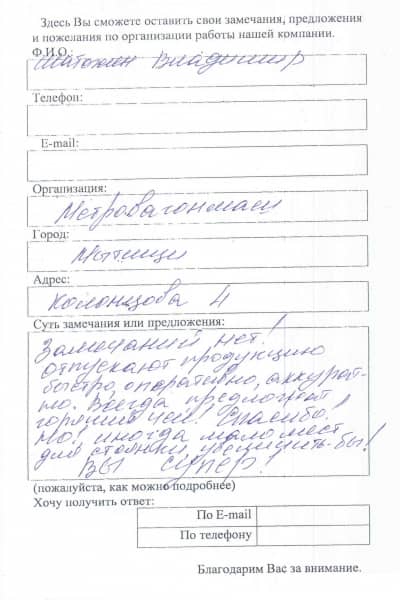 Здесь Вы сможете оставить свои замечания, предложения
и пожелания по организации работы нашей компании.
Ф.И.О.:
Владимир
Телефон:
E-mail:
Организация:
Метровагонмаш
Город:
Мытищи
Адрес:
Колонцова 4
Суть замечания или предложения:
Замечаний нет!
отпускают продукцию
быстро, оперативно, аккурат-
но. Всегда предложат
горячий чай! Спасибо!
Но! иногда мало мест
для стоянки, увеличить-бы!
ВЫ супер!
(пожалуйста, как можно подробнее)
Хочу получить ответ:
По E-mail
По телефону
Благодарим Вас за внимание.